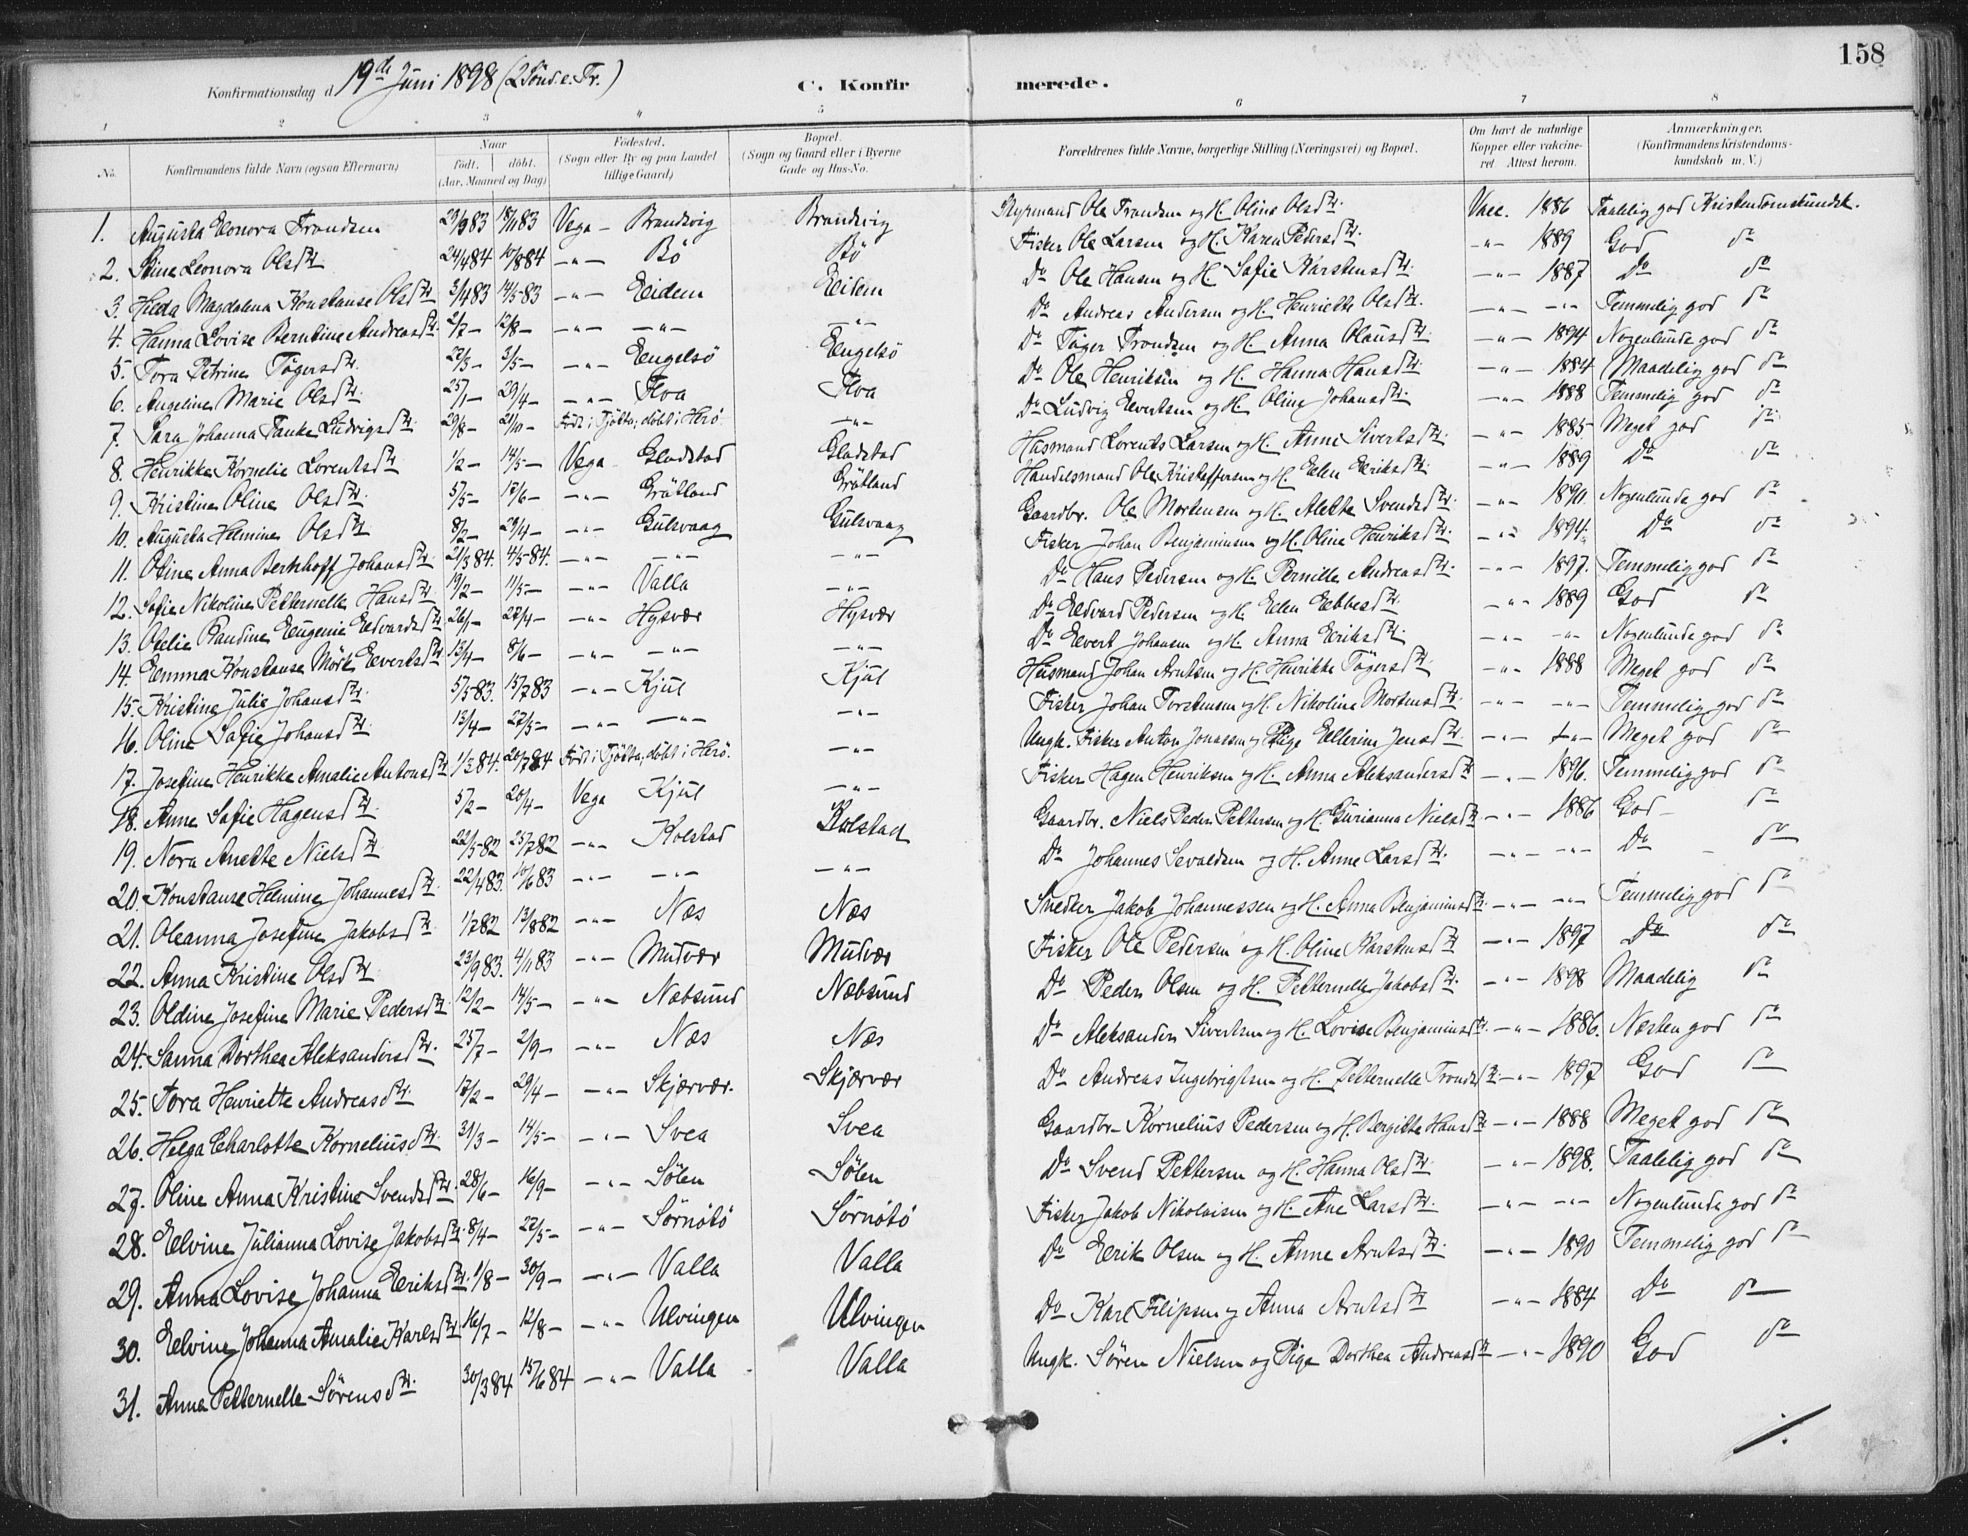 158
Konfirmationsdag d. 19de Juni 1898 (2 Sønd. e. Tr.)
C. Konfirmerede.
1 2 3 4 5 6 7 8
No. Konfirmandens fulde Navn (ogsaa Efternavn) Naar født. døbt. (Aar, Maaned og Dag) Fødested. (Sogn eller By og paa Landet tillige Gaard) Bopæl. (Sogn og Gaard eller i Byerne Gade og Hus-No. Forældrenes fulde Navne, borgerlige Stilling (Næringsvei) og Bopæl. Om havt de naturlige Kopper eller vaccineret. Attest herom. Anmærkninger. (Konfirmandens Kristendomskundskab m. V.)
1. Augusta Eleonora Trondsen 29/9 83 18/11 83 Vega – Brandsvig Brandsvig Styrmand Ole Trondsen og H. Oline Olsdtr. Vacc. 1886 Taalelig god Kristendomskundsk.
2. Stine Leonora Olsdtr. 24/4 84 10/8 84 –"– Bø Bø Fisker Ole Larsen og H. Karen Pedersdtr. –"– 1889 God do
3. Hilda Magdalena Konstanse Olsdtr. 3/4 83 14/5 83 –"– Eidem Eidem Do Ole Hansen og H. Sofie Karstensdtr. –"– 1887 Do do
4. Hanna Lovise Berntine Andreasdtr. 2/7 – 12/8 – –"– –"– –"– Do Andreas Andersen og H. Henriette Olsdtr. –"– –"– Temmelig god do
5. Tora Petrine Tøgersdtr. 27/3 – 3/5 – –"– Engelsø Engelsø Do Tøger Trondsen og H. Anna Olausdtr. –"– 1894 Nogenlunde god do
6. Angeline Marie Olsdtr. 25/1 – 29/4 – –"– Floa Floa Do Ole Henriksen og H. Hanna Hansdtr. –"– 1884 Maadelig god do
7. Sara Johanna Tanke Ludvigsdtr. 29/8 – 21/10 – Født i Tjøtta, døbt i Herø –"– Do Ludvig Evertsen og H. Oline Johansdtr. –"– 1888 Temmelig god do
8. Henrikke Kornelie Lorentsdtr. 1/2 – 14/5 – Vega Gladstad Gladstad Husmand Lorents Larsen og H. Anne Sivertsdtr. –"– 1885 Meget god do
9. Kristine Oline Olsdtr. 5/5 – 17/6 – –"– Grøtland Grøtland Handelsmand Ole Kristoffersen og H. Elen Eriksdtr. –"– 1889 Do do
10. Augusta Helmine Olsdtr. 8/2 – 29/4 – –"– Gulsvaag Gulsvaag Gaardbr. Ole Mortensen og H. Alette Svendsdtr. –"– 1890 Nogenlunde god do
11. Oline Anna Berthoff Johansdtr. 21/3 84. 4/5 84. –"– –"– –"– Fisker Johan Benjaminsen og H. Oline Henriksdtr. –"– 1894. Do do
12. Sofie Nikoline Petternelle Hansdtr. 19/2 – 11/5 – –"– Valla –"– Do Hans Pedersen og H. Pernille Andreasdtr. –"– 1897. Temmelig god do
13. Eugenie Edvardsdtr. 26/1 – 27/4 – –"– Hysvær Hysvær Do Edvard Pedersen og H. Elen Ebbesdtr. –"– 1889 God do
14. Emma Konstanse Mørk Evertsdtr. 13/4 – 8/6 – –"– –"– –"– Do Evert Johansen og H. Anna Eriksdtr. –"– –"– Nogenlunde god do
15. Kristine Julie Johansdtr. 5/5 83. 15/7 83 –"– Kjul Kjul Husmand Johan Arntsen og H. Henrikke Tøgersdtr. –"– 1888 Meget god do
16. Oline Sofie Johansdtr. 13/4 – 27/5 – –"– –"– –"– Fisker Johan Torstensen og H. Nikoline Mortensdtr. –"– –"– Temmelig god do
17. Josefine Henrikke Amalie Antonsdtr. 1/3 84. 20/7 84 Født i Tjøtta, døbt i Herø. –"– Ungk. Fisker Anton Jonassen og Pige Ellerine Jensdtr. –"– –"– Meget god do
18. Anne Sofie Hagensdtr. 5/2 – 20/4 – Vega Kjul –"– Fisker Hagen Henriksen og H. Anna Aleksandersdtr. –"– 1896. Temmelig god do
19. Nora Anette Nielsdtr. 22/5 82 25/7 82 –"– Kolstad Kolstad Gaardbr. Niels Peder Pettersen og H. Gurianna Nielsdtr. –"– 1886 God – do
20. Konstanse Helmine Johannesdtr. 22/4 83. 10/6 83 –"– –"– –"– Do Johannes Sevaldsen og H. Anne Larsdtr. –"– –"– Do – do
21. Oleanna Josefine Jakobsdtr. 1/7 82 13/8 82 –"– Næs Næs Snedker Jakob Johannessen og H. Anna Benjaminsdtr. –"– –"– Temmelig god do
22. Anna Kristine Olsdtr. 23/9 83. 4/11 83 –"– Mudvær Mudvær Fisker Ole Pedersen og H. Oline Karstensdtr. –"– 1897 Do do
23. Oldine Josefine Marie Pedersdtr. 12/2 – 14/5 – –"– Nebsund Nebsund Do Peder Olsen og H. Petternelle Jakobsdtr. –"– 1898 Maadelig do
24. Sanna Dorthea Aleksandersdtr. 25/7 – 2/9 – –"– Næs Næs Do Aleksander Sivertsen og H. Lovise Benjaminsdtr. –"– 1886. Næsten god do
25. Tora Henriette Andreasdtr. 17/2 – 29/4 – –"– Skjærvær. Skjærvær Do Andreas Ingebrigtsen og H. Petternelle Trondsdtr. –"– 1897 God do
26. Helga Charlotte Korneliusdtr. 31/3 – 14/5 – –"– Svea Svea Gaardbr. Kornelius Pedersen og H. Bergitte Hansdtr. –"– 1888 Meget god do
27. Oline Anna Kristine Svendsdtr. 28/6 – 16/9 – –"– Sølen Sølen Do Svend Pettersen og H. Hanna Olsdtr. –"– 1898. Taalelig god do
28. Elvine Julianna Lovise Jakobsdtr. 8/4 – 27/5 – –"– Sørnøtø Sørnøtø Fisker Jakob Nikolaisen og H. Ane Larsdtr. –"– –"– Nogenlunde god do
29. Anna Lovise Johanna Eriksdtr. 1/8 – 30/9 – –"– Valla Valla Do Erik Olsen og H. Anne Arntsdtr. –"– 1890 Temmelig god do
30. Elvine Johanna Amalie Karlsdtr. 16/7 – 12/8 – –"– Ulvingen Ulvingen Do Karl Filipsen og Anna Arntsdtr. –"– 1884 Do do
31. Anna Petternelle Sørensdtr. 30/3 84 15/6 84 –"– Valla Valla Ungk. Søren Nielsen og Pige Dorthea Andreasdtr. –"– 1890 God do